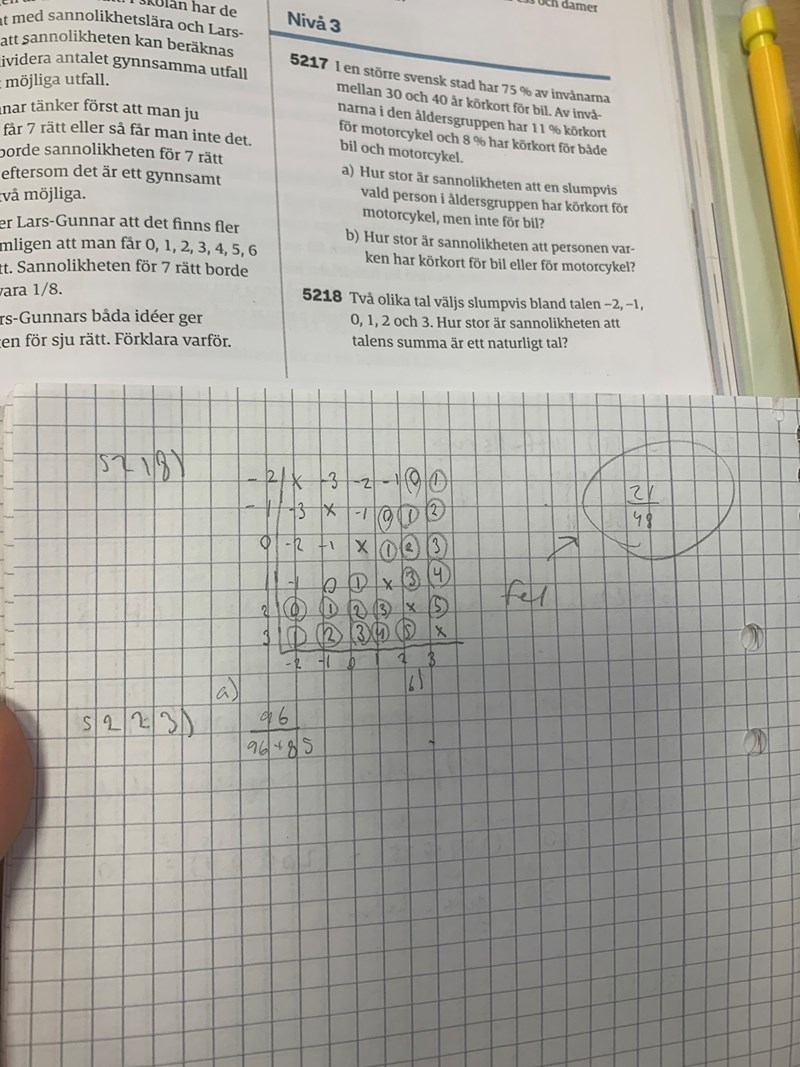 skolan har de
t med sannolikhetslära och Lars-
att sannolikheten kan beräknas
ividera antalet gynnsamma utfall
möjliga utfall.
nar tänker först att man ju
får 7 rätt eller så får man inte det.
borde sannolikheten för 7 rätt
eftersom det är ett gynnsamt
vå möjliga.
er Lars-Gunnar att det finns fler
mligen att man får 0, 1, 2, 3, 4, 5, 6
tt. Sannolikheten för 7 rätt borde
vara 1/8.
rs-Gunnars båda idéer ger
en för sju rätt. Förklara varför.
och damer
Nivå 3
5217 I en större svensk stad har 75 % av invånarna
mellan 30 och 40 år körkort för bil. Av invå-
narna i den åldersgruppen har 11 % körkort
för motorcykel och 8 % har körkort för både
bil och motorcykel.
a) Hur stor är sannolikheten att en slumpvis
vald person i åldersgruppen har körkort för
motorcykel, men inte för bil?
b) Hur stor är sannolikheten att personen var-
ken har körkort för bil eller för motorcykel?
5218 Två olika tal väljs slumpvis bland talen −2, −1,
0, 1, 2 och 3. Hur stor är sannolikheten att
talens summa är ett naturligt tal?
5218)
-2 | x -3 -2 -1 0 1
-1 | -3 x -1 0 1 2
0 | -2 -1 x 1 2 3
1 | -1 0 1 x 3 4
2 | 0 1 2 3 x 5
3 | 1 2 3 4 5 x
-2 -1 0 1 2 3
21
48
fel
5223)
a)
96
96+85
b)